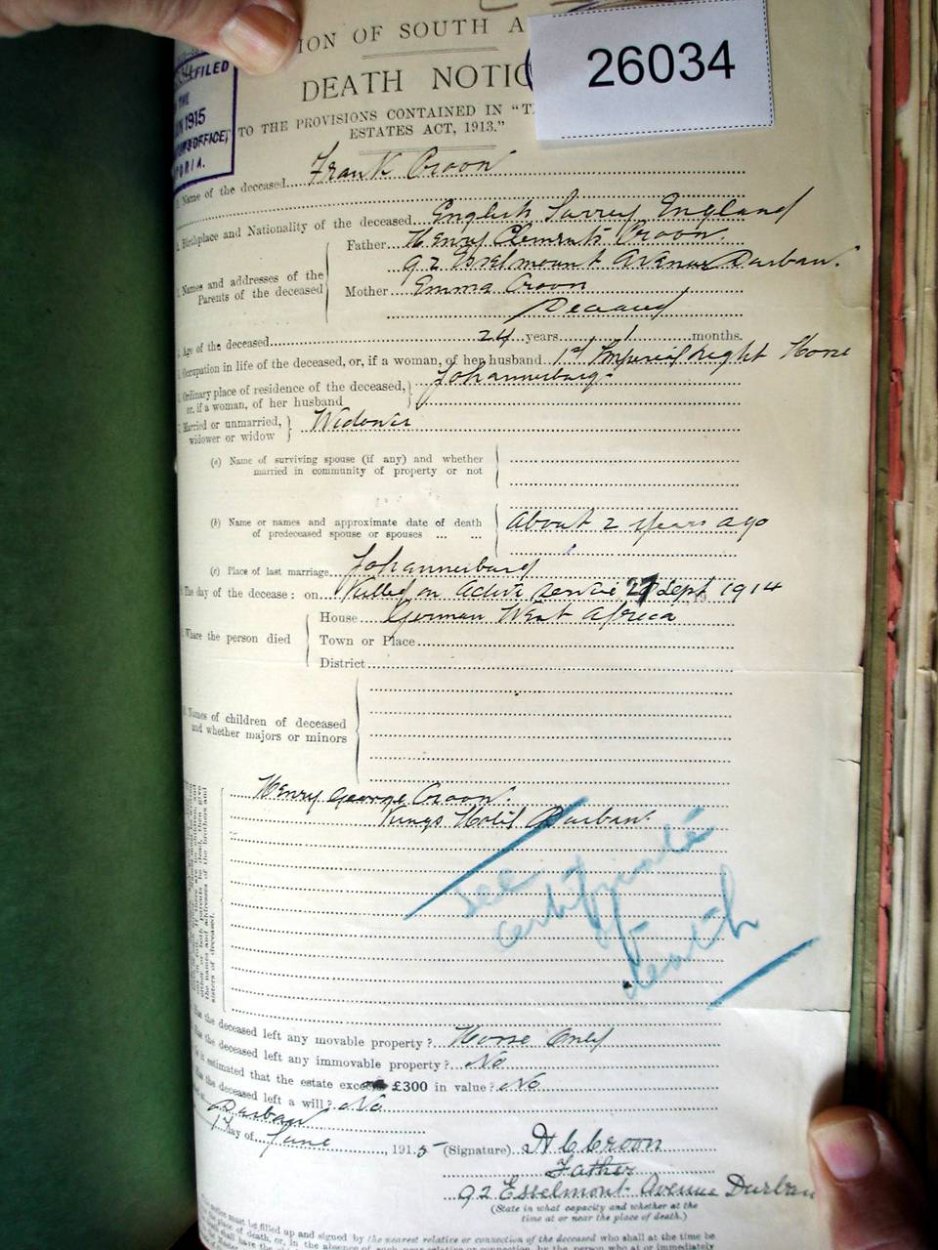 ION OF SOUTH A
26034
DEATH NOTIC
TO THE PROVISIONS CONTAINED IN "T
ESTATES ACT, 1913."
FILED
THE
1915
OFFICE,
ORIA.
Name of the deceased Frank Croon
Birthplace and Nationality of the deceased English Surrey England
Names and addresses of the Parents of the deceased
Father Henry Clements Croon.
92 Esselmount Avenue Durban.
Mother Emma Croon
Deceased
Age of the deceased 24 years 1 months.
Occupation in life of the deceased, or, if a woman, of her husband 1st Imperial Light Horse
Ordinary place of residence of the deceased, or, if a woman, of her husband Johannesburg.
Married or unmarried, widower or widow Widower
(a) Name of surviving spouse (if any) and whether
married in community of property or not
(b) Name or names and approximate date of death
of predeceased spouse or spouses ... ... About 2 years ago
(c) Place of last marriage Johannesburg
The day of the decease: on Killed on Active Service 27 Sept 1914
Where the person died
House German West Africa
Town or Place
District
Names of children of deceased
and whether majors or minors
Henry George Croon.
Kings Hotel Durban.
see
certificate
of
death
the deceased left any movable property? Horse Only
the deceased left any immovable property? No
it estimated that the estate exceeds £300 in value? No
the deceased left a will? No
Durban
1st day of June, 1915 (Signature) H C Croon
Father
92 Esselmont Avenue Durban
(State in what capacity and whether at the
time at or near the place of death.)
must be filled up and signed by the nearest relative or connection of the deceased who shall at the time be